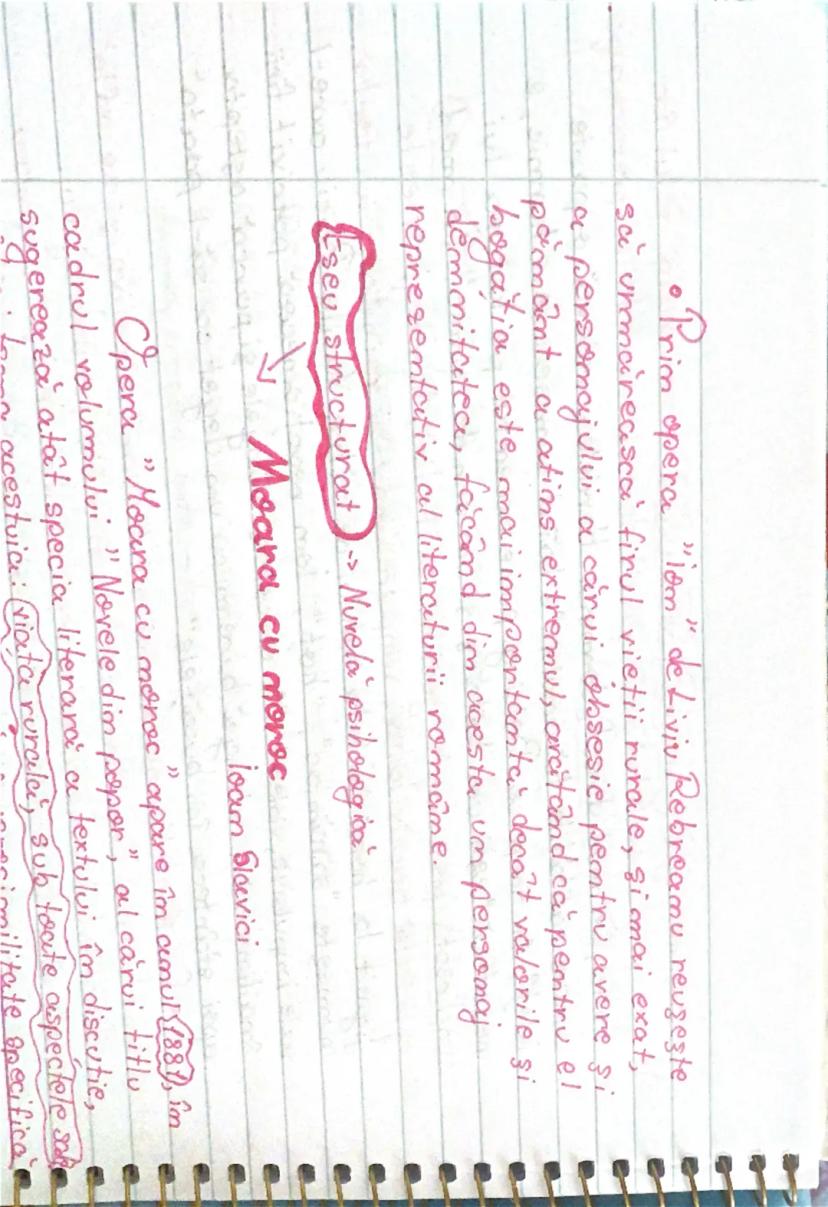 • Prin opera "Ion" de Liviu Rebreanu reușește
să urmărească firul vieții rurale, și mai exat,
a personajului a cărui obsesie pentru avere și
pământ a atins extremul, arătând că pentru el
bogăția este mai importantă decât valorile și
demnitatea, făcând din acesta un personaj
reprezentativ al literaturii române.
Eseu structurat -> Nuvelă psihologică
Moara cu noroc
Ioan Slavici
Opera "Moara cu noroc" apare în anul 1881, în
cadrul volumului "Novele din popor", al cărui titlu
sugerează atât specia literară a textului în discuție,
acestuia: viața rurală, sub toate aspectele sale
verosimilitate specifică